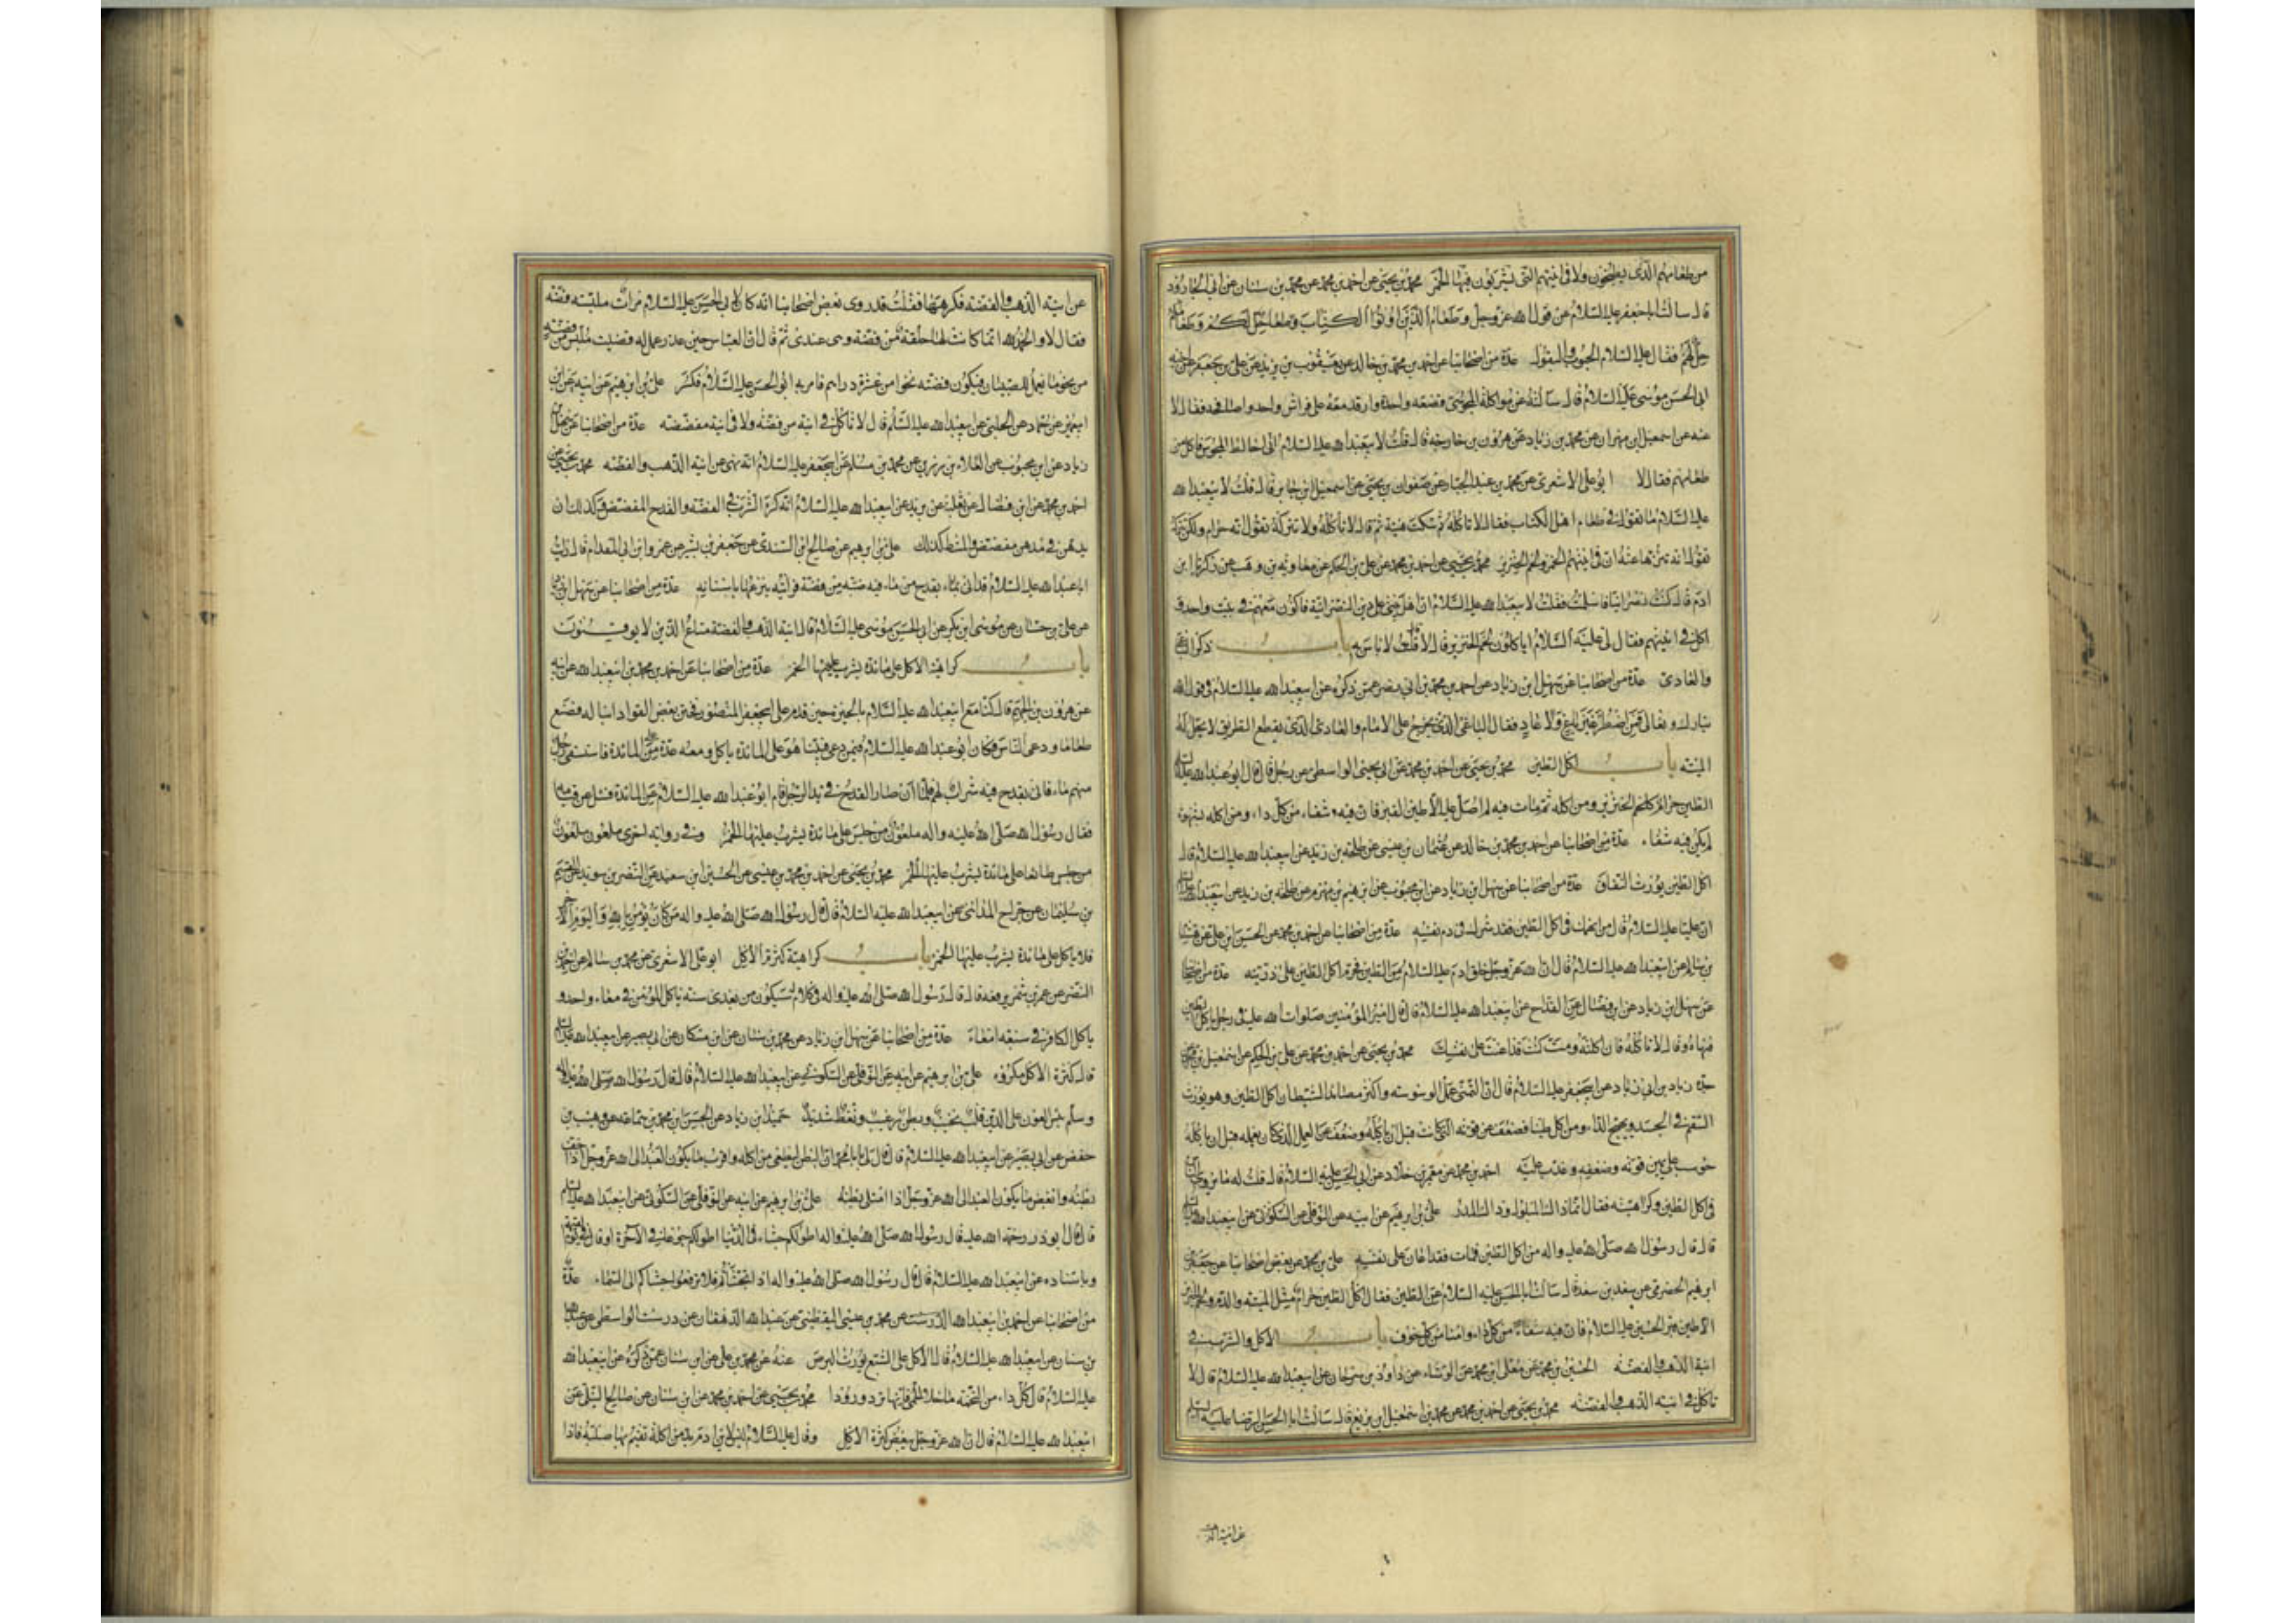 من طعامهم الذى يطبخون ولا فى انيتهم التى يشربون فيها الخمر محمد بن يحيى عن احمد بن محمد عن محمد بن سنان عن ابى الجارود
قال سالت ابا جعفر عليه السلام عن قول الله عز وجل وطعام الذين اوتوا الكتاب حل لكم وطعامكم
حل لهم فقال عليه السلام الحبوب والبقول عدة من اصحابنا عن احمد بن محمد بن خالد عن يعقوب بن يزيد عن على بن جعفر عن اخيه
ابى الحسن موسى عليه السلام قال سالته عن مواكلة المجوسى فى قصعة واحدة وارقد معه على فراش واحد واصافحه فقال لا
عنه عن اسمعيل بن مهران عن محمد بن زياد عن هرون بن خارجة قال قلت لابيعبدالله عليه السلام انى اخالط المجوس فاكل من
طعامهم فقال لا ابو على الاشعرى عن محمد بن عبد الجبار عن صفوان بن يحيى عن اسمعيل بن جابر قال قلت لابيعبدالله
عليه السلام ما تقول فى طعام اهل الكتاب فقال لا تاكله ثم سكت هنيئة ثم قال لا تاكله ولا تتركه تقول انه حرام ولكن تتركه
تنزها عنه ان فى انيتهم الخمر ولحم الخنزير محمد بن يحيى عن احمد بن محمد عن على بن الحكم عن معاوية بن وهب عن زكريا بن
ادم قال كنت نصرانيا فاسلمت فقلت لابيعبدالله عليه السلام ان اهل بيتى على دين النصرانية فاكون معهم فى بيت واحد و
اكل فى انيتهم فقال لى عليه السلام اياكلون لحم الخنزير قلت لا قال لا باس به باب ذكر الباغى
والعادى عدة من اصحابنا عن سهل بن زياد عن احمد بن محمد بن ابى نصر عمن ذكره عن ابيعبدالله عليه السلام فى قول الله
تبارك وتعالى فمن اضطر غير باغ ولا عاد فقال الباغى الذى يخرج على الامام والعادى الذى يقطع الطريق لا يحل له
الميتة باب اكل الطين محمد بن يحيى عن احمد بن محمد عن ابى يحيى الواسطى عن رجل قال قال ابو عبد الله عليه السلام
الطين حرام كله كلحم الخنزير ومن اكله ثم مات فيه لم اصل عليه الا طين القبر فان فيه شفاء من كل داء ومن اكله بشهوة
لم يكن فيه شفاء عدة من اصحابنا عن احمد بن محمد بن خالد عن عثمان بن عيسى عن طلحة بن زيد عن ابيعبدالله عليه السلام قال
اكل الطين يورث النفاق عدة من اصحابنا عن سهل بن زياد عن ابن محبوب عن ابرهيم بن مهزم عن طلحة بن زيد عن ابيعبدالله عليه السلام
ان عليا عليه السلام قال من انهمك فى اكل الطين فقد شرك فى دم نفسه عدة من اصحابنا عن احمد بن محمد عن الحسن بن على عن هشام
بن سالم عن ابيعبدالله عليه السلام قال ان الله عز وجل خلق ادم عليه السلام من الطين فحرم اكل الطين على ذريته عدة من اصحابنا
عن سهل بن زياد عن ابن فضال عن القداح عن ابيعبدالله عليه السلام قال قال امير المؤمنين صلوات الله عليه فى رجل ياكل الطين
فنهاه وقال لا تاكله فان اكلته ومت كنت قد اعنت على نفسك محمد بن يحيى عن احمد بن محمد عن على بن الحكم عن اسمعيل بن محمد عن
جده زياد بن ابى زياد عن ابيجعفر عليه السلام قال ان التمنى عمل الوسوسة واكثر مصائد الشيطان اكل الطين وهو يورث
السقم فى الجسد ويهيج الداء ومن اكل طينا فضعف عن قوته التى كانت قبل ان ياكله وضعف عن العمل الذى كان يعمله قبل ان ياكله
حوسب على ما بين قوته وضعفه وعذب عليه احمد بن محمد عن معمر بن خلاد عن ابى الحسن عليه السلام قال قلت له ما يروى الناس
فى اكل الطين وكراهيته فقال انما ذاك المبلول وذاك المدر على بن ابرهيم عن ابيه عن النوفلى عن السكونى عن ابيعبدالله عليه السلام
قال قال رسول الله صلى الله عليه واله من اكل الطين فمات فقد اعان على نفسه على بن محمد عن بعض اصحابنا عن جعفر بن
ابرهيم الحضرمى عن سعد بن سعد قال سالت ابا الحسن عليه السلام عن الطين فقال اكل الطين حرام مثل الميتة والدم ولحم الخنزير
الا طين قبر الحسين عليه السلام فان فيه شفاء من كل داء وامنا من كل خوف باب الاكل والشرب فى
انية الذهب والفضة الحسين بن محمد عن معلى بن محمد عن الوشاء عن داود بن سرحان عن ابيعبدالله عليه السلام قال لا
تاكل فى انية الذهب والفضة محمد بن يحيى عن احمد بن محمد عن محمد بن اسمعيل بن بزيع قال سالت ابا الحسن الرضا عليه السلام
عن انية الذهب
عن انية الذهب والفضة فكرههما فقلت قد روى بعض اصحابنا انه كان لابى الحسن عليه السلام مرات ملبسة فضة
فقال لا والحمد لله انما كانت لها حلقة من فضة وهى عندى ثم قال ان العباس حين عذر عمل له قضيب ملبس من فضة
من نحو ما يعمل للصبيان فيكون فضته نحوا من عشرة دراهم فامر به ابو الحسن عليه السلام فكسر على بن ابرهيم عن ابيه عن ابن
ابيعمير عن حماد عن الحلبى عن ابيعبدالله عليه السلام قال لا تاكل فى انية من فضة ولا فى انية مفضضة عدة من اصحابنا عن سهل بن
زياد عن ابن محبوب عن العلاء بن رزين عن محمد بن مسلم عن ابيجعفر عليه السلام انه نهى عن انية الذهب والفضة محمد بن يحيى عن
احمد بن محمد عن ابن فضال عن ثعلبة عن بريد عن ابيعبدالله عليه السلام انه كره الشرب فى الفضة والقدح المفضض وكذلك ان
يدهن فى مدهن مفضض والمشط كذلك على بن ابرهيم عن صالح بن السندى عن جعفر بن بشير عن عمرو بن ابى المقدام قال رايت
ابا عبد الله عليه السلام قد اتى بقدح من ماء فيه ضبة من فضة فرايته ينزعها باسنانه عدة من اصحابنا عن سهل بن زياد
عن على بن حسان عن موسى بن بكر عن ابى الحسن موسى عليه السلام قال انية الذهب والفضة متاع الذين لا يوقنون
باب كراهية الاكل على مائدة يشرب عليها الخمر عدة من اصحابنا عن احمد بن محمد بن ابيعبدالله عن ابيه
عن هرون بن الجهم قال كنا مع ابيعبدالله عليه السلام بالحيرة حين قدم على ابيجعفر المنصور فختن بعض القواد ابنا له فصنع
طعاما ودعى الناس فكان ابو عبد الله عليه السلام فيمن دعى فبينا هو على المائدة ياكل ومعه عدة على المائدة فاستسقى رجل
منهم ماء فاتى بقدح فيه شراب لهم فلما ان صار القدح فى يد الرجل قام ابو عبد الله عليه السلام عن المائدة فسئل عن قيامه
فقال رسول الله صلى الله عليه واله ملعون من جلس على مائدة يشرب عليها الخمر وفى رواية اخرى ملعون ملعون
من جلس طائعا على مائدة يشرب عليها الخمر محمد بن يحيى عن احمد بن محمد بن عيسى عن الحسين بن سعيد عن النضر بن سويد عن القسم
بن سليمان عن جراح المدائنى عن ابيعبدالله عليه السلام قال قال رسول الله صلى الله عليه واله من كان يؤمن بالله واليوم الاخر
فلا ياكل على مائدة يشرب عليها الخمر باب كراهية كثرة الاكل ابو على الاشعرى عن محمد بن سالم عن احمد بن
النضر عن عمرو بن شمر يرفعه قال قال رسول الله صلى الله عليه واله فى كلام له سيكون من بعدى سنة ياكل المؤمن فى معاء واحد و
ياكل الكافر فى سبعة امعاء عدة من اصحابنا عن سهل بن زياد عن محمد بن سنان عن ابن مسكان عن ابى بصير عن ابيعبدالله عليه السلام
قال كثرة الاكل مكروه على بن ابرهيم عن ابيه عن النوفلى عن السكونى عن ابيعبدالله عليه السلام قال قال رسول الله صلى الله عليه واله
وسلم بئس العون على الدين قلب نخيب وبطن رغيب ونعظ شديد حميد بن زياد عن الحسن بن محمد بن سماعة عن وهيب بن
حفص عن ابى بصير عن ابيعبدالله عليه السلام قال قال لى يا ابا محمد ان البطن ليطغى من اكله واقرب ما يكون العبد الى الله عز وجل اذا خف
بطنه وابغض ما يكون العبد الى الله عز وجل اذا امتلى بطنه على بن ابرهيم عن ابيه عن النوفلى عن السكونى عن ابيعبدالله عليه السلام
قال قال ابو ذر رحمة الله عليه قال رسول الله صلى الله عليه واله اطولكم جشاء فى الدنيا اطولكم جوعا فى الاخرة او قال يوم القيمة
وباسناده عن ابيعبدالله عليه السلام قال قال رسول الله صلى الله عليه واله اذا تجشأتم فلا ترفعوا جشاكم الى السماء عدة
من اصحابنا عن احمد بن ابيعبدالله عن محمد بن عيسى اليقطينى عن عبيد الله الدهقان عن درست الواسطى عن عبد الله
بن سنان عن ابيعبدالله عليه السلام قال الاكل على الشبع يورث البرص عنه عن محمد بن على عن ابن سنان عمن ذكره عن ابيعبدالله
عليه السلام قال كل داء من التخمة ما خلا الحمى فانها ترد ورودا محمد بن يحيى عن احمد بن محمد عن ابن سنان عن صالح النيلى عن
ابيعبدالله عليه السلام قال ان الله عز وجل يبغض كثرة الاكل وقال عليه السلام ليس لابن ادم بد من اكلة تقيم بها صلبه فاذا